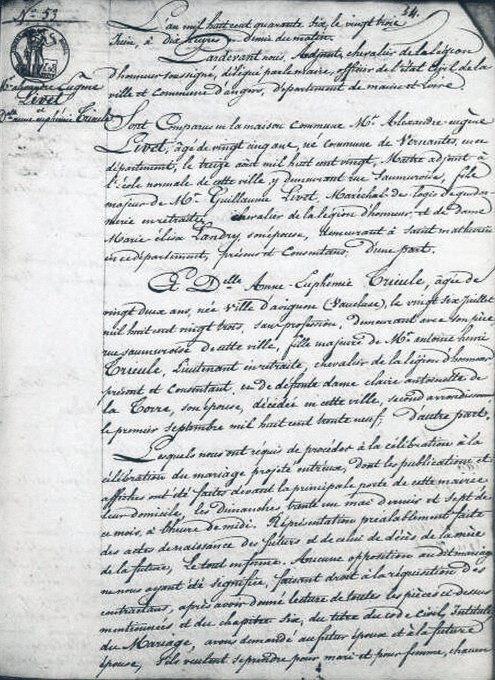 N.° 53
24.
Mr. alexandre Eugène
Livet
et
Dlle anne euphémie Trieule
L'an mil huit cent quarante six, le vingt trois
Juin, à dix heures et demie du matin.
Pardevant nous, Adjoint, chevalier de la légion
d'honneur soussigné, délégué par le maire, officier de l'état Civil de la
ville et Commune d'angers, département de maine et loire
Sont Comparus en la maison Commune Mr. Alexandre-eugène
Livet, âgé de vingt cinq ans, né commune de Vernantes, en ce
département, le treize août mil huit cent vingt, Maître adjoint à
l'école normale de cette ville y demeurant rue Saumuroise, fils
majeur de Mr. Guillaume Livet, Maréchal de logis de gendar
merie en retraite, chevalier de la légion d'honneur, et de dame
Marie élisa Landry son épouse, demeurant à Saint mathurin
en ce département, présens et Consentans, d'une part.
Et Delle Anne-Euphémie Trieule, âgée de
vingt deux ans, née ville d'avignon (Vaucluse), le vingt six Juillet
mil huit cent vingt trois, sans profession, demeurant avec son père
rue saumuroise de cette ville, fille majeure de Mr. antoine henri
Trieule, Lieutenant en retraite, chevalier de la légion d'honneur
présent et Consentant, et de défunte dame claire antoinette de
la Torre, son épouse, décédée en cette ville, second arrondisst.
le premier septembre mil huit cent trente neuf; d'autre part.
Lesquels nous ont requis de procéder à la célébration à la
célébration du mariage projeté entr'eux, dont les publications et
affiches ont été faites devant la principale porte de cette mairie
leur domicile, les Dimanches trente un mai dernier et sept de
ce mois, à l'heure de midi. Représentation préalablement faite
des actes de naissance des futurs et de celui de décès de la mère
de la future, le tout en forme. Aucune opposition au dit mariage
ne nous ayant été signifiée, faisant droit à la réquisition des
contractans, après avoir donné lecture de toutes les pièces ci dessus
mentionnées et du chapitre six, du titre du code Civil, Intitulé
du Mariage, avons demandé au futur époux et à la future
épouse, s'ils veulent se prendre pour mari et pour femme, chacun